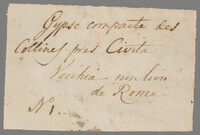 Gypse compacte des
Collines pres Civita
Vecchia non loin
de Rome
N° 1.